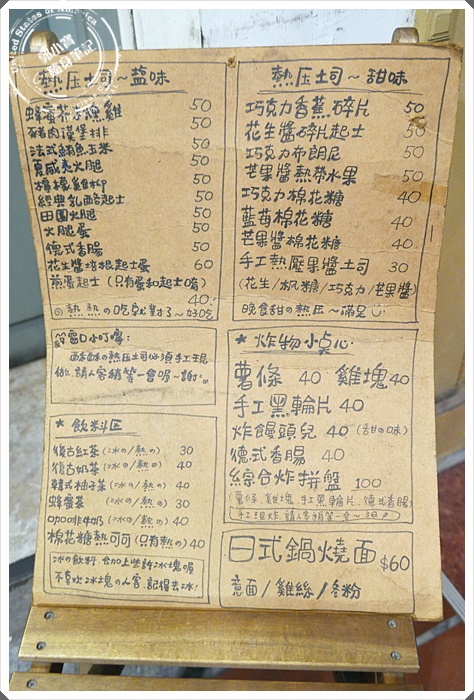 熱压土司~鹹味
蜂蜜芥末燻雞 50
豬肉漢堡排 50
法式鮪魚玉米 50
夏威夷火腿 50
檸檬雞柳 50
經典乳酪起士 50
田園火腿 50
火腿蛋 50
德式香腸 50
花生醬培根起士蛋 60
煎蛋起士 (只有蛋和起士唷) 40
熱熱的吃就對了~好吃
熱压土司~甜味
巧克力香蕉碎片 50
花生醬碎片起士 50
巧克力布朗尼 50
芒果醬熱帶水果 50
巧克力棉花糖 40
藍莓棉花糖 40
芒果醬棉花糖 40
手工熱壓果醬土司 30
(花生/楓糖/巧克力/芒果醬)
晚食甜の熱压~滿足
小叮嚀:
酥酥の熱压土司必須手工現
做,請人客稍等一會喔~謝
* 飲料區
復古紅茶 (冰の/熱の) 30
復古奶茶 (冰の/熱の) 40
韓式柚子茶 (冰の/熱の) 40
蜂蜜茶 (冰の/熱の) 30
(冰の/熱の) 40
棉花糖熱可可 (只有熱の) 40
冰の飲料 会加上些許冰塊喔
不喜歡冰塊の人客,記得去冰!
* 炸物小点心
薯條 40 雞塊 40
手工黑輪片 40
炸饅頭兒 40 (甜の味)
德式香腸 40
綜合炸拼盤 100
(薯條、雞塊、手工黑輪片、德式香腸)
手工現炸、請人客稍等一会~
日式鍋燒面 $60
意面/雞絲/冬粉